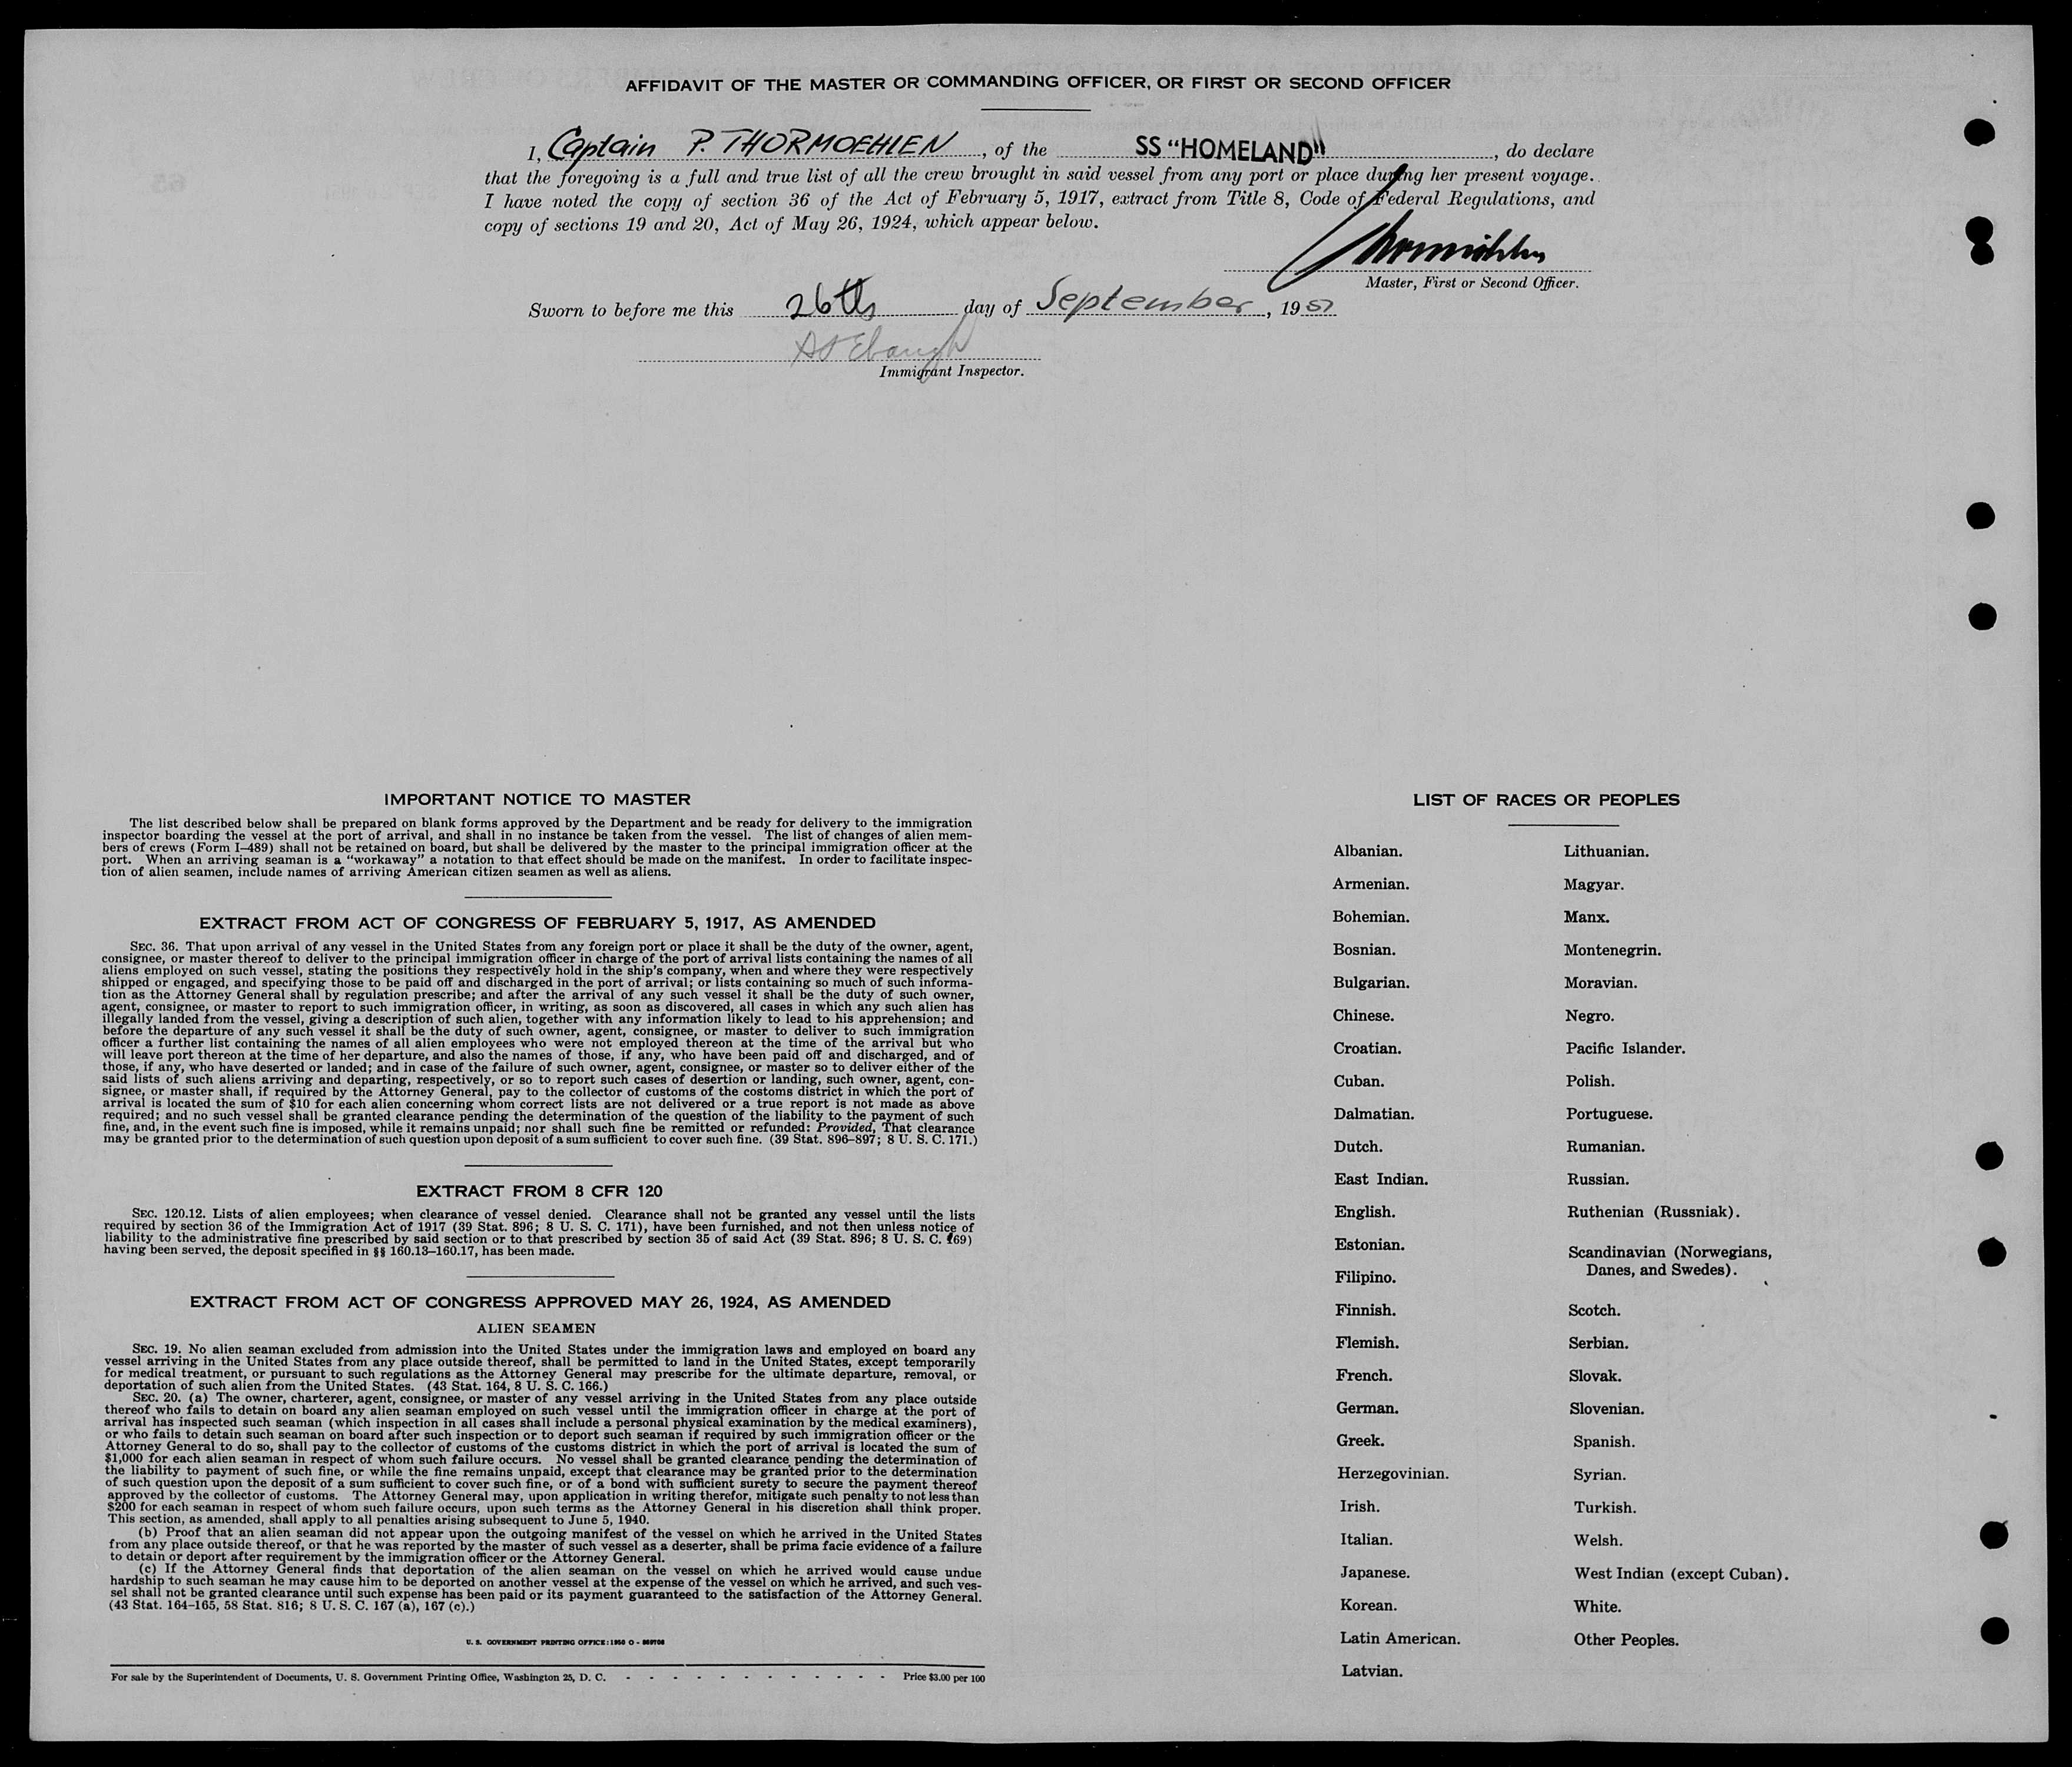 AFFIDAVIT OF THE MASTER OR COMMANDING OFFICER, OR FIRST OR SECOND OFFICER
I, Captain P. THORMOEHLEN, of the SS "HOMELAND", do declare
that the foregoing is a full and true list of all the crew brought in said vessel from any port or place during her present voyage.
I have noted the copy of section 36 of the Act of February 5, 1917, extract from Title 8, Code of Federal Regulations, and
copy of sections 19 and 20, Act of May 26, 1924, which appear below.
Master, First or Second Officer.
Sworn to before me this 26th day of September, 19
Immigrant Inspector.
IMPORTANT NOTICE TO MASTER
The list described below shall be prepared on blank forms approved by the Department and be ready for delivery to the immigration
inspector boarding the vessel at the port of arrival, and shall in no instance be taken from the vessel. The list of changes of alien mem-
bers of crews (Form I-489) shall not be retained on board, but shall be delivered by the master to the principal immigration officer at the
port. When an arriving seaman is a "workaway" a notation to that effect should be made on the manifest. In order to facilitate inspec-
tion of alien seamen, include names of arriving American citizen seamen as well as aliens.
EXTRACT FROM ACT OF CONGRESS OF FEBRUARY 5, 1917, AS AMENDED
SEC. 36. That upon arrival of any vessel in the United States from any foreign port or place it shall be the duty of the owner, agent,
consignee, or master thereof to deliver to the principal immigration officer in charge of the port of arrival lists containing the names of all
aliens employed on such vessel, stating the positions they respectively hold in the ship's company, when and where they were respectively
shipped or engaged, and specifying those to be paid off and discharged in the port of arrival; or lists containing so much of such informa-
tion as the Attorney General shall by regulation prescribe; and after the arrival of any such vessel it shall be the duty of such owner,
agent, consignee, or master to report to such immigration officer, in writing, as soon as discovered, all cases in which any such alien has
illegally landed from the vessel, giving a description of such alien, together with any information likely to lead to his apprehension; and
before the departure of any such vessel it shall be the duty of such owner, agent, consignee, or master to deliver to such immigration
officer a further list containing the names of all alien employees who were not employed thereon at the time of the arrival but who
will leave port thereon at the time of her departure, and also the names of those, if any, who have been paid off and discharged, and of
those, if any, who have deserted or landed; and in case of the failure of such owner, agent, consignee, or master so to deliver either of the
said lists of such aliens arriving and departing, respectively, or so to report such cases of desertion or landing, such owner, agent, con-
signee, or master shall, if required by the Attorney General, pay to the collector of customs of the costoms district in which the port of
arrival is located the sum of $10 for each alien concerning whom correct lists are not delivered or a true report is not made as above
required; and no such vessel shall be granted clearance pending the determination of the question of the liability to the payment of such
fine, and, in the event such fine is imposed, while it remains unpaid; nor shall such fine be remitted or refunded: Provided, That clearance
may be granted prior to the determination of such question upon deposit of a sum sufficient to cover such fine. (39 Stat. 896-897; 8 U. S. C. 171.)
EXTRACT FROM 8 CFR 120
SEC. 120.12. Lists of alien employees; when clearance of vessel denied. Clearance shall not be granted any vessel until the lists
required by section 36 of the Immigration Act of 1917 (39 Stat. 896; 8 U. S. C. 171), have been furnished, and not then unless notice of
liability to the administrative fine prescribed by said section or to that prescribed by section 35 of said Act (39 Stat. 896; 8 U. S. C. 169)
having been served, the deposit specified in §§ 160.13-160.17, has been made.
EXTRACT FROM ACT OF CONGRESS APPROVED MAY 26, 1924, AS AMENDED
ALIEN SEAMEN
SEC. 19. No alien seaman excluded from admission into the United States under the immigration laws and employed on board any
vessel arriving in the United States from any place outside thereof, shall be permitted to land in the United States, except temporarily
for medical treatment, or pursuant to such regulations as the Attorney General may prescribe for the ultimate departure, removal, or
deportation of such alien from the United States. (43 Stat. 164, 8 U. S. C. 166.)
SEC. 20. (a) The owner, charterer, agent, consignee, or master of any vessel arriving in the United States from any place outside
thereof who fails to detain on board any alien seaman employed on such vessel until the immigration officer in charge at the port of
arrival has inspected such seaman (which inspection in all cases shall include a personal physical examination by the medical examiners),
or who fails to detain such seaman on board after such inspection or to deport such seaman if required by such immigration officer or the
Attorney General to do so, shall pay to the collector of customs of the customs district in which the port of arrival is located the sum of
$1,000 for each alien seaman in respect of whom such failure occurs. No vessel shall be granted clearance pending the determination of
the liability to payment of such fine, or while the fine remains unpaid, except that clearance may be granted prior to the determination
of such question upon the deposit of a sum sufficient to cover such fine, or of a bond with sufficient surety to secure the payment thereof
approved by the collector of customs. The Attorney General may, upon application in writing therefor, mitigate such penalty to not less than
$200 for each seaman in respect of whom such failure occurs, upon such terms as the Attorney General in his discretion shall think proper.
This section, as amended, shall apply to all penalties arising subsequent to June 5, 1940.
(b) Proof that an alien seaman did not appear upon the outgoing manifest of the vessel on which he arrived in the United States
from any place outside thereof, or that he was reported by the master of such vessel as a deserter, shall be prima facie evidence of a failure
to detain or deport after requirement by the immigration officer or the Attorney General.
(c) If the Attorney General finds that deportation of the alien seaman on the vessel on which he arrived would cause undue
hardship to such seaman he may cause him to be deported on another vessel at the expense of the vessel on which he arrived, and such ves-
sel shall not be granted clearance until such expense has been paid or its payment guaranteed to the satisfaction of the Attorney General.
(43 Stat. 164-165, 58 Stat. 816; 8 U. S. C. 167 (a), 167 (c).)
U. S. GOVERNMENT PRINTING OFFICE: 1950 O -
For sale by the Superintendent of Documents, U. S. Government Printing Office, Washington 25, D. C. - - - - - - - - - - - Price $3.00 per 100
LIST OF RACES OR PEOPLES
Albanian.
Armenian.
Bohemian.
Bosnian.
Bulgarian.
Chinese.
Croatian.
Cuban.
Dalmatian.
Dutch.
East Indian.
English.
Estonian.
Filipino.
Finnish.
Flemish.
French.
German.
Greek.
Herzegovinian.
Irish.
Italian.
Japanese.
Korean.
Latin American.
Latvian.
Lithuanian.
Magyar.
Manx.
Montenegrin.
Moravian.
Negro.
Pacific Islander.
Polish.
Portuguese.
Rumanian.
Russian.
Ruthenian (Russniak).
Scandinavian (Norwegians,
Danes, and Swedes).
Scotch.
Serbian.
Slovak.
Slovenian.
Spanish.
Syrian.
Turkish.
Welsh.
West Indian (except Cuban).
White.
Other Peoples.